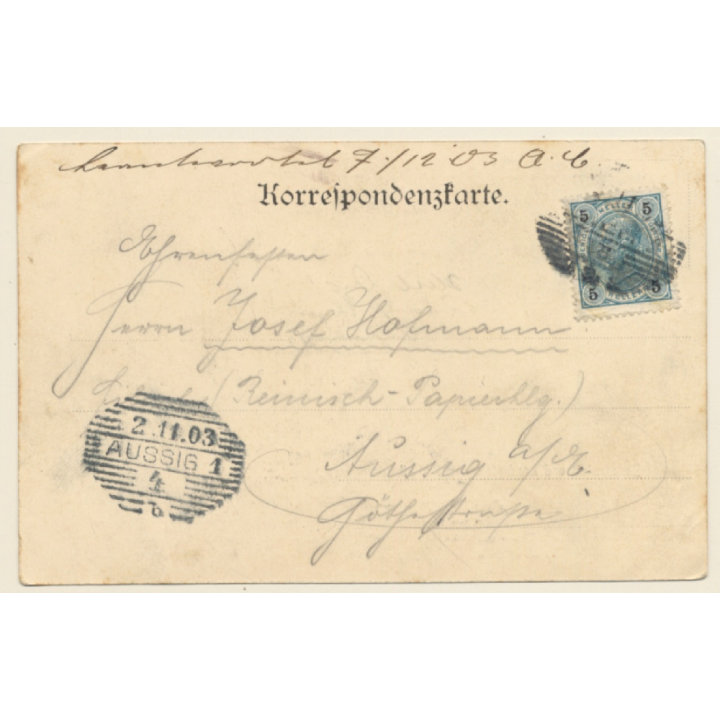 beantwortet 7./12 03 A. C.
Korrespondenzkarte.
5 5
5 5
Ehrenfesten
Herrn Josef Hofmann
(Reinisch-Papierhlg.)
Aussig a/E.
Göthestrasse
2.11.03
AUSSIG 1
4
b